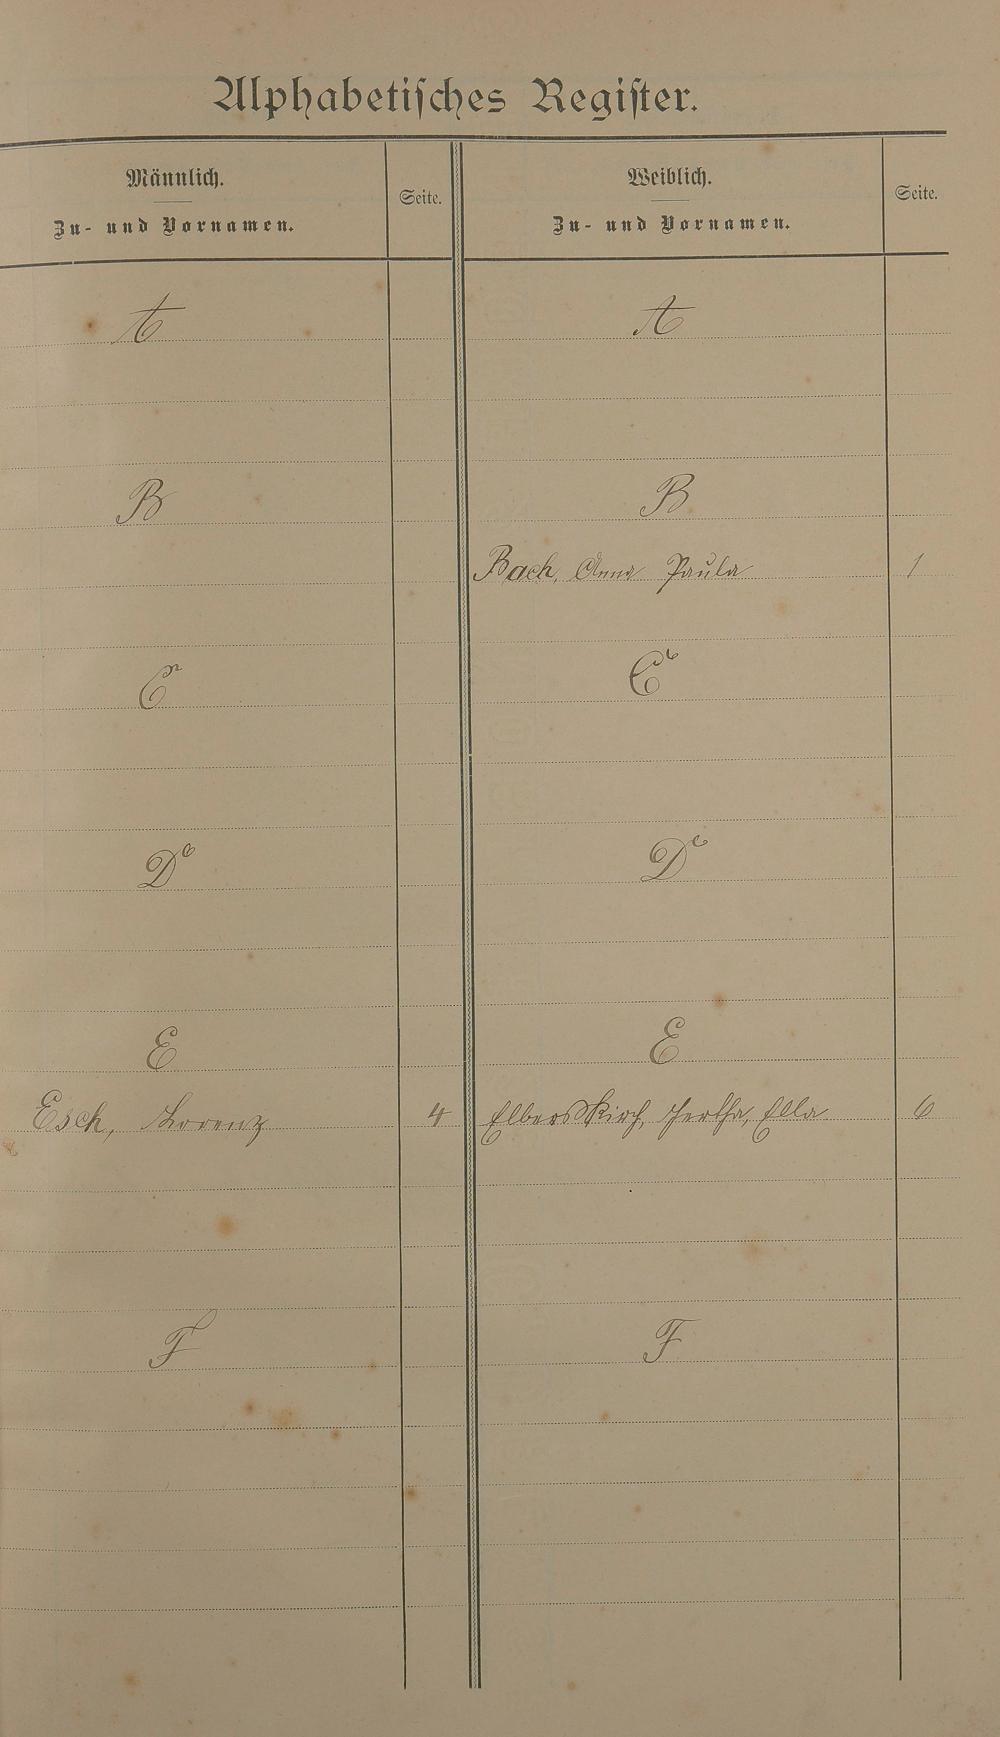 Alphabetisches Register.
Männlich.
Zu- und Vornamen.
Seite.
Weiblich.
Zu- und Vornamen.
Seite.
A
A
B
B
Bach, Anna Paula 1
C
C
D
D
E
E
Esch, Lorenz 4
Elberskirch, Hertha, Ella 6
F
F